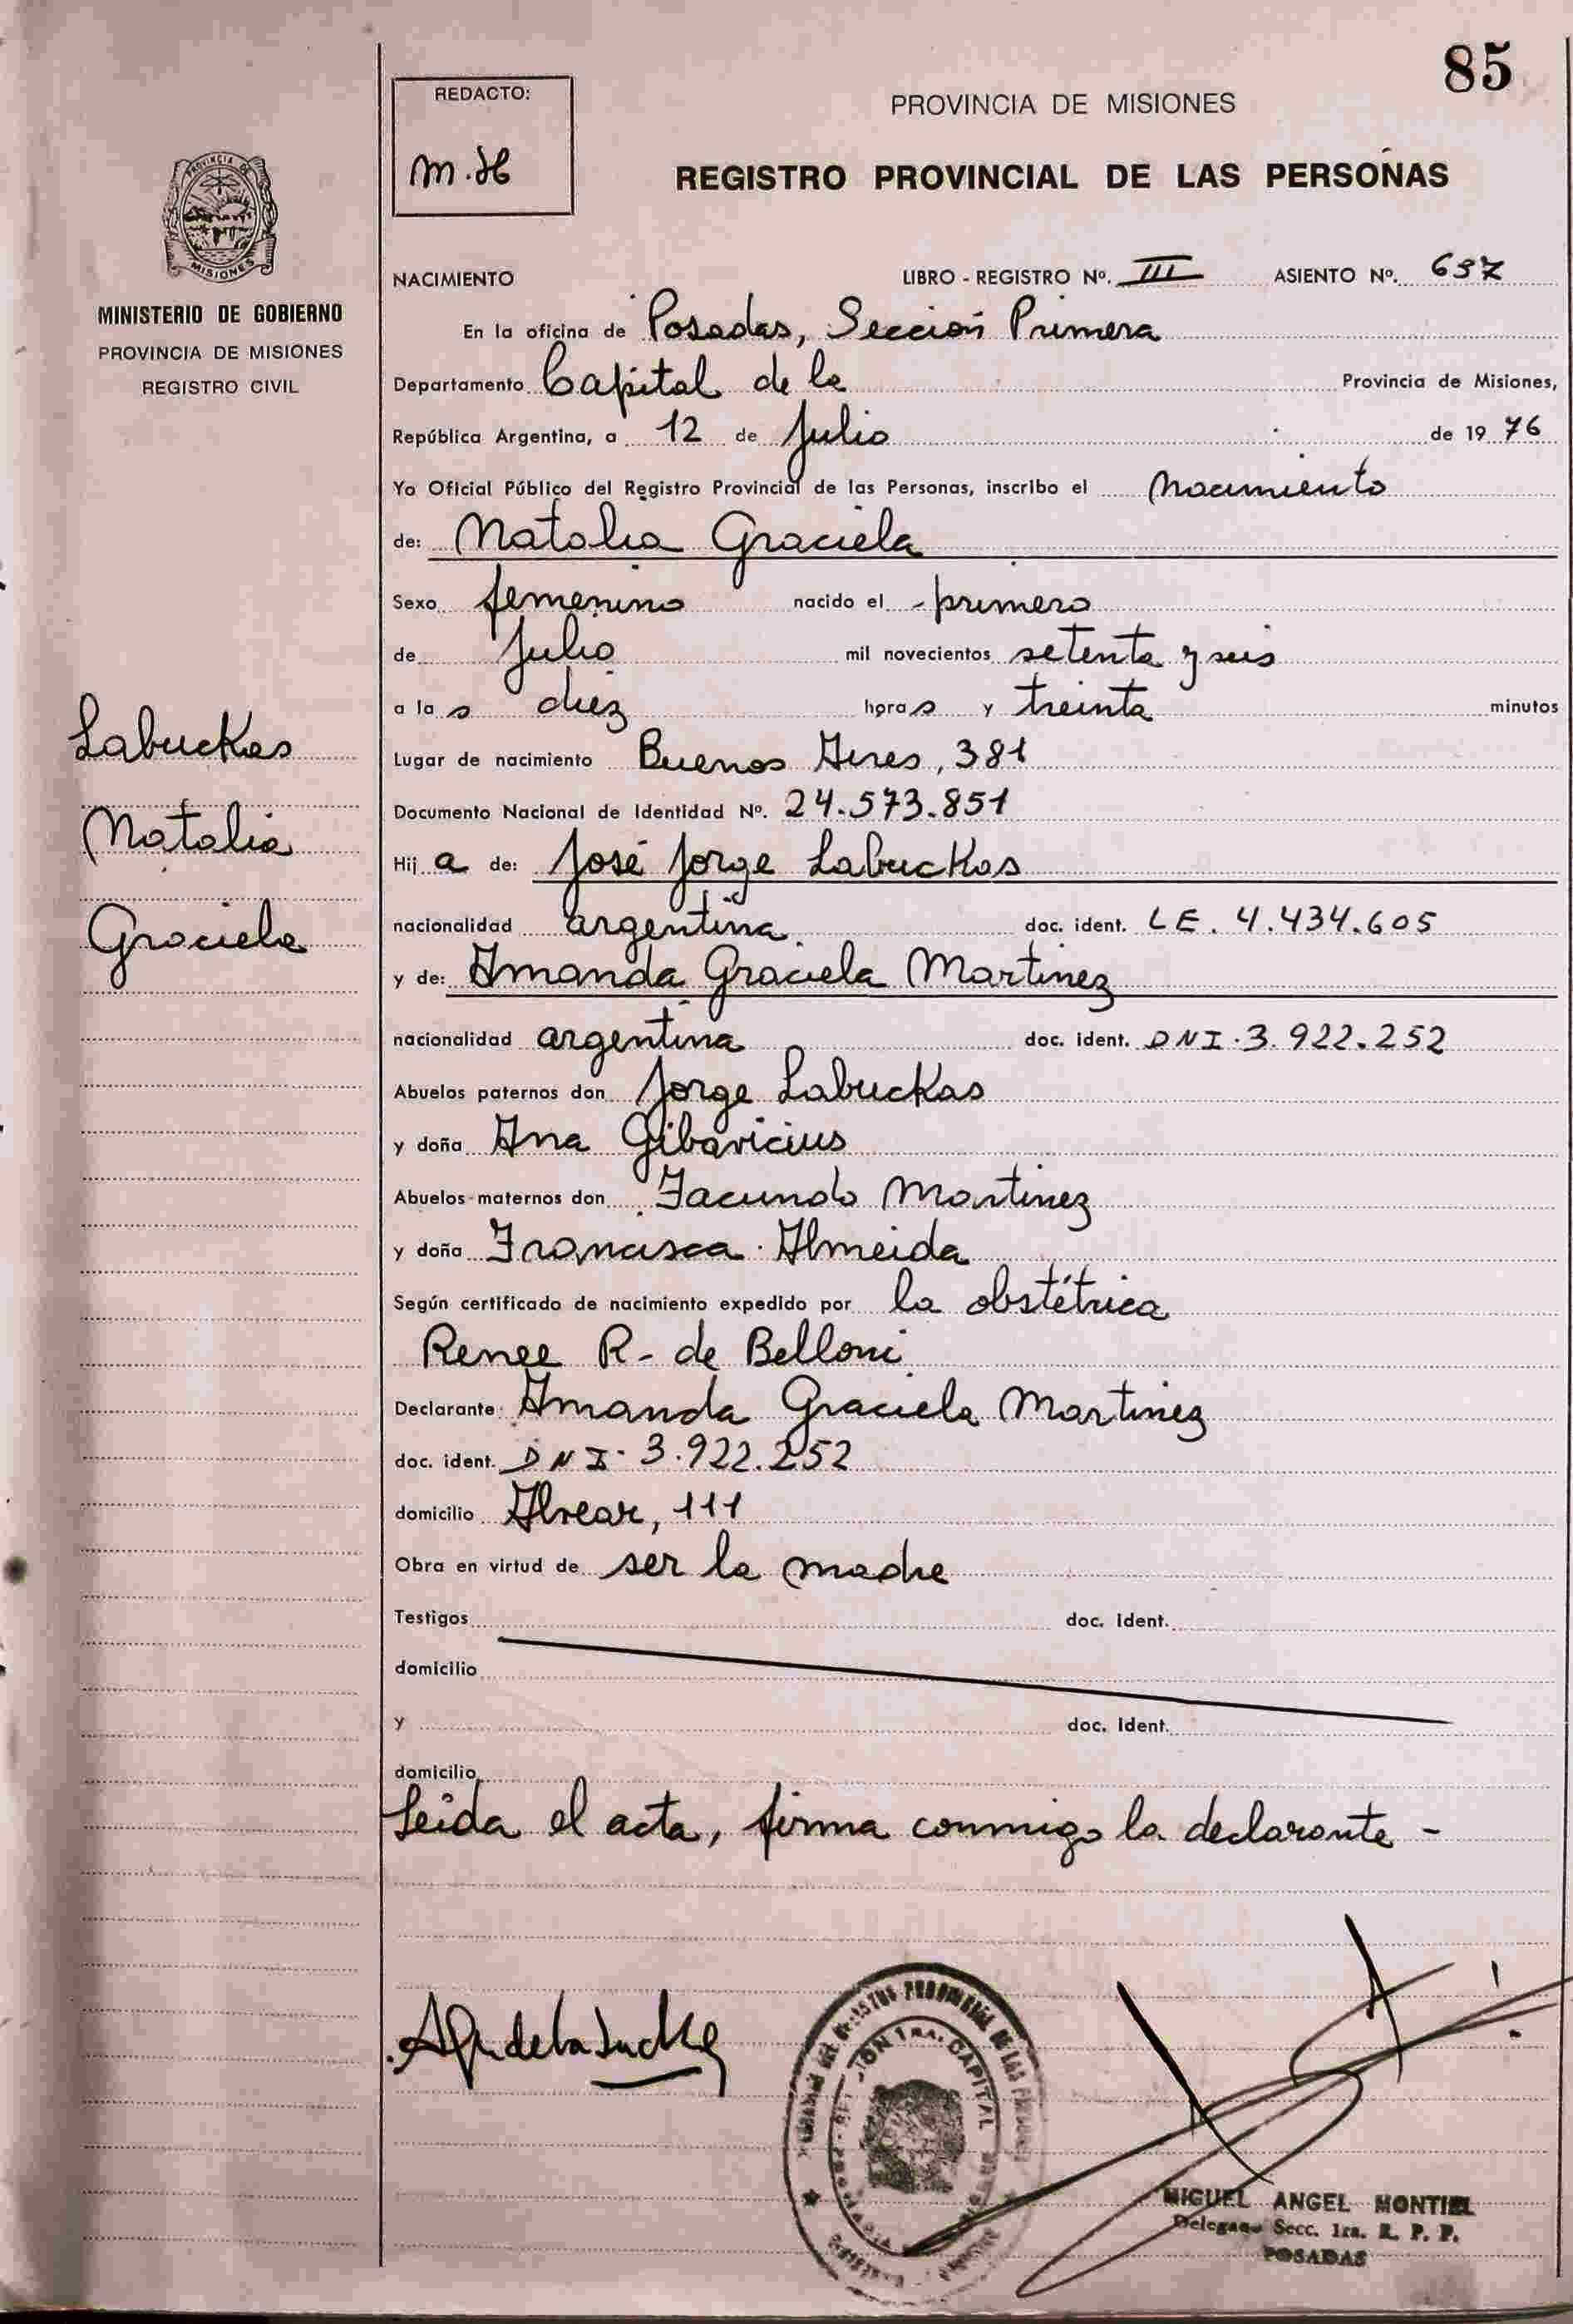 85
REDACTO:
M.H
PROVINCIA DE MISIONES
REGISTRO PROVINCIAL DE LAS PERSONAS
PROVINCIA DE
MISIONES
MINISTERIO DE GOBIERNO
PROVINCIA DE MISIONES
REGISTRO CIVIL
Labuckas
Natalia
Graciela
NACIMIENTO LIBRO - REGISTRO Nº. III ASIENTO Nº. 697
En la oficina de Posadas, Sección Primera
Departamento Capital de la Provincia de Misiones,
República Argentina, a 12 de Julio de 19 76
Yo Oficial Público del Registro Provincial de las Personas, inscribo el Nacimiento
de: Natalia Graciela
Sexo femenino nacido el primero
de Julio mil novecientos setenta y seis
a la s diez hora s y treinta minutos
Lugar de nacimiento Buenos Aires, 381
Documento Nacional de Identidad Nº. 24.573.851
Hij a de: José Jorge Labuckas
nacionalidad argentina doc. ident. LE. 4.434.605
y de: Amanda Graciela Martinez
nacionalidad argentina doc. ident. DNI. 3.922.252
Abuelos paternos don Jorge Labuckas
y doña Ana Gibavicius
Abuelos maternos don Facundo Martinez
y doña Francisca Almeida
Según certificado de nacimiento expedido por la obstétrica
Renee R- de Belloni
Declarante Amanda Graciela Martinez
doc. ident. DNI. 3.922.252
domicilio Alvear, 111
Obra en virtud de ser la madre
Testigos doc. Ident.
domicilio
y doc. Ident.
domicilio
Leída el acta, firma conmigo la declarante -
MIGUEL ANGEL MONTIEL
Delegado Secc. 1ra. R. P. P.
POSADAS